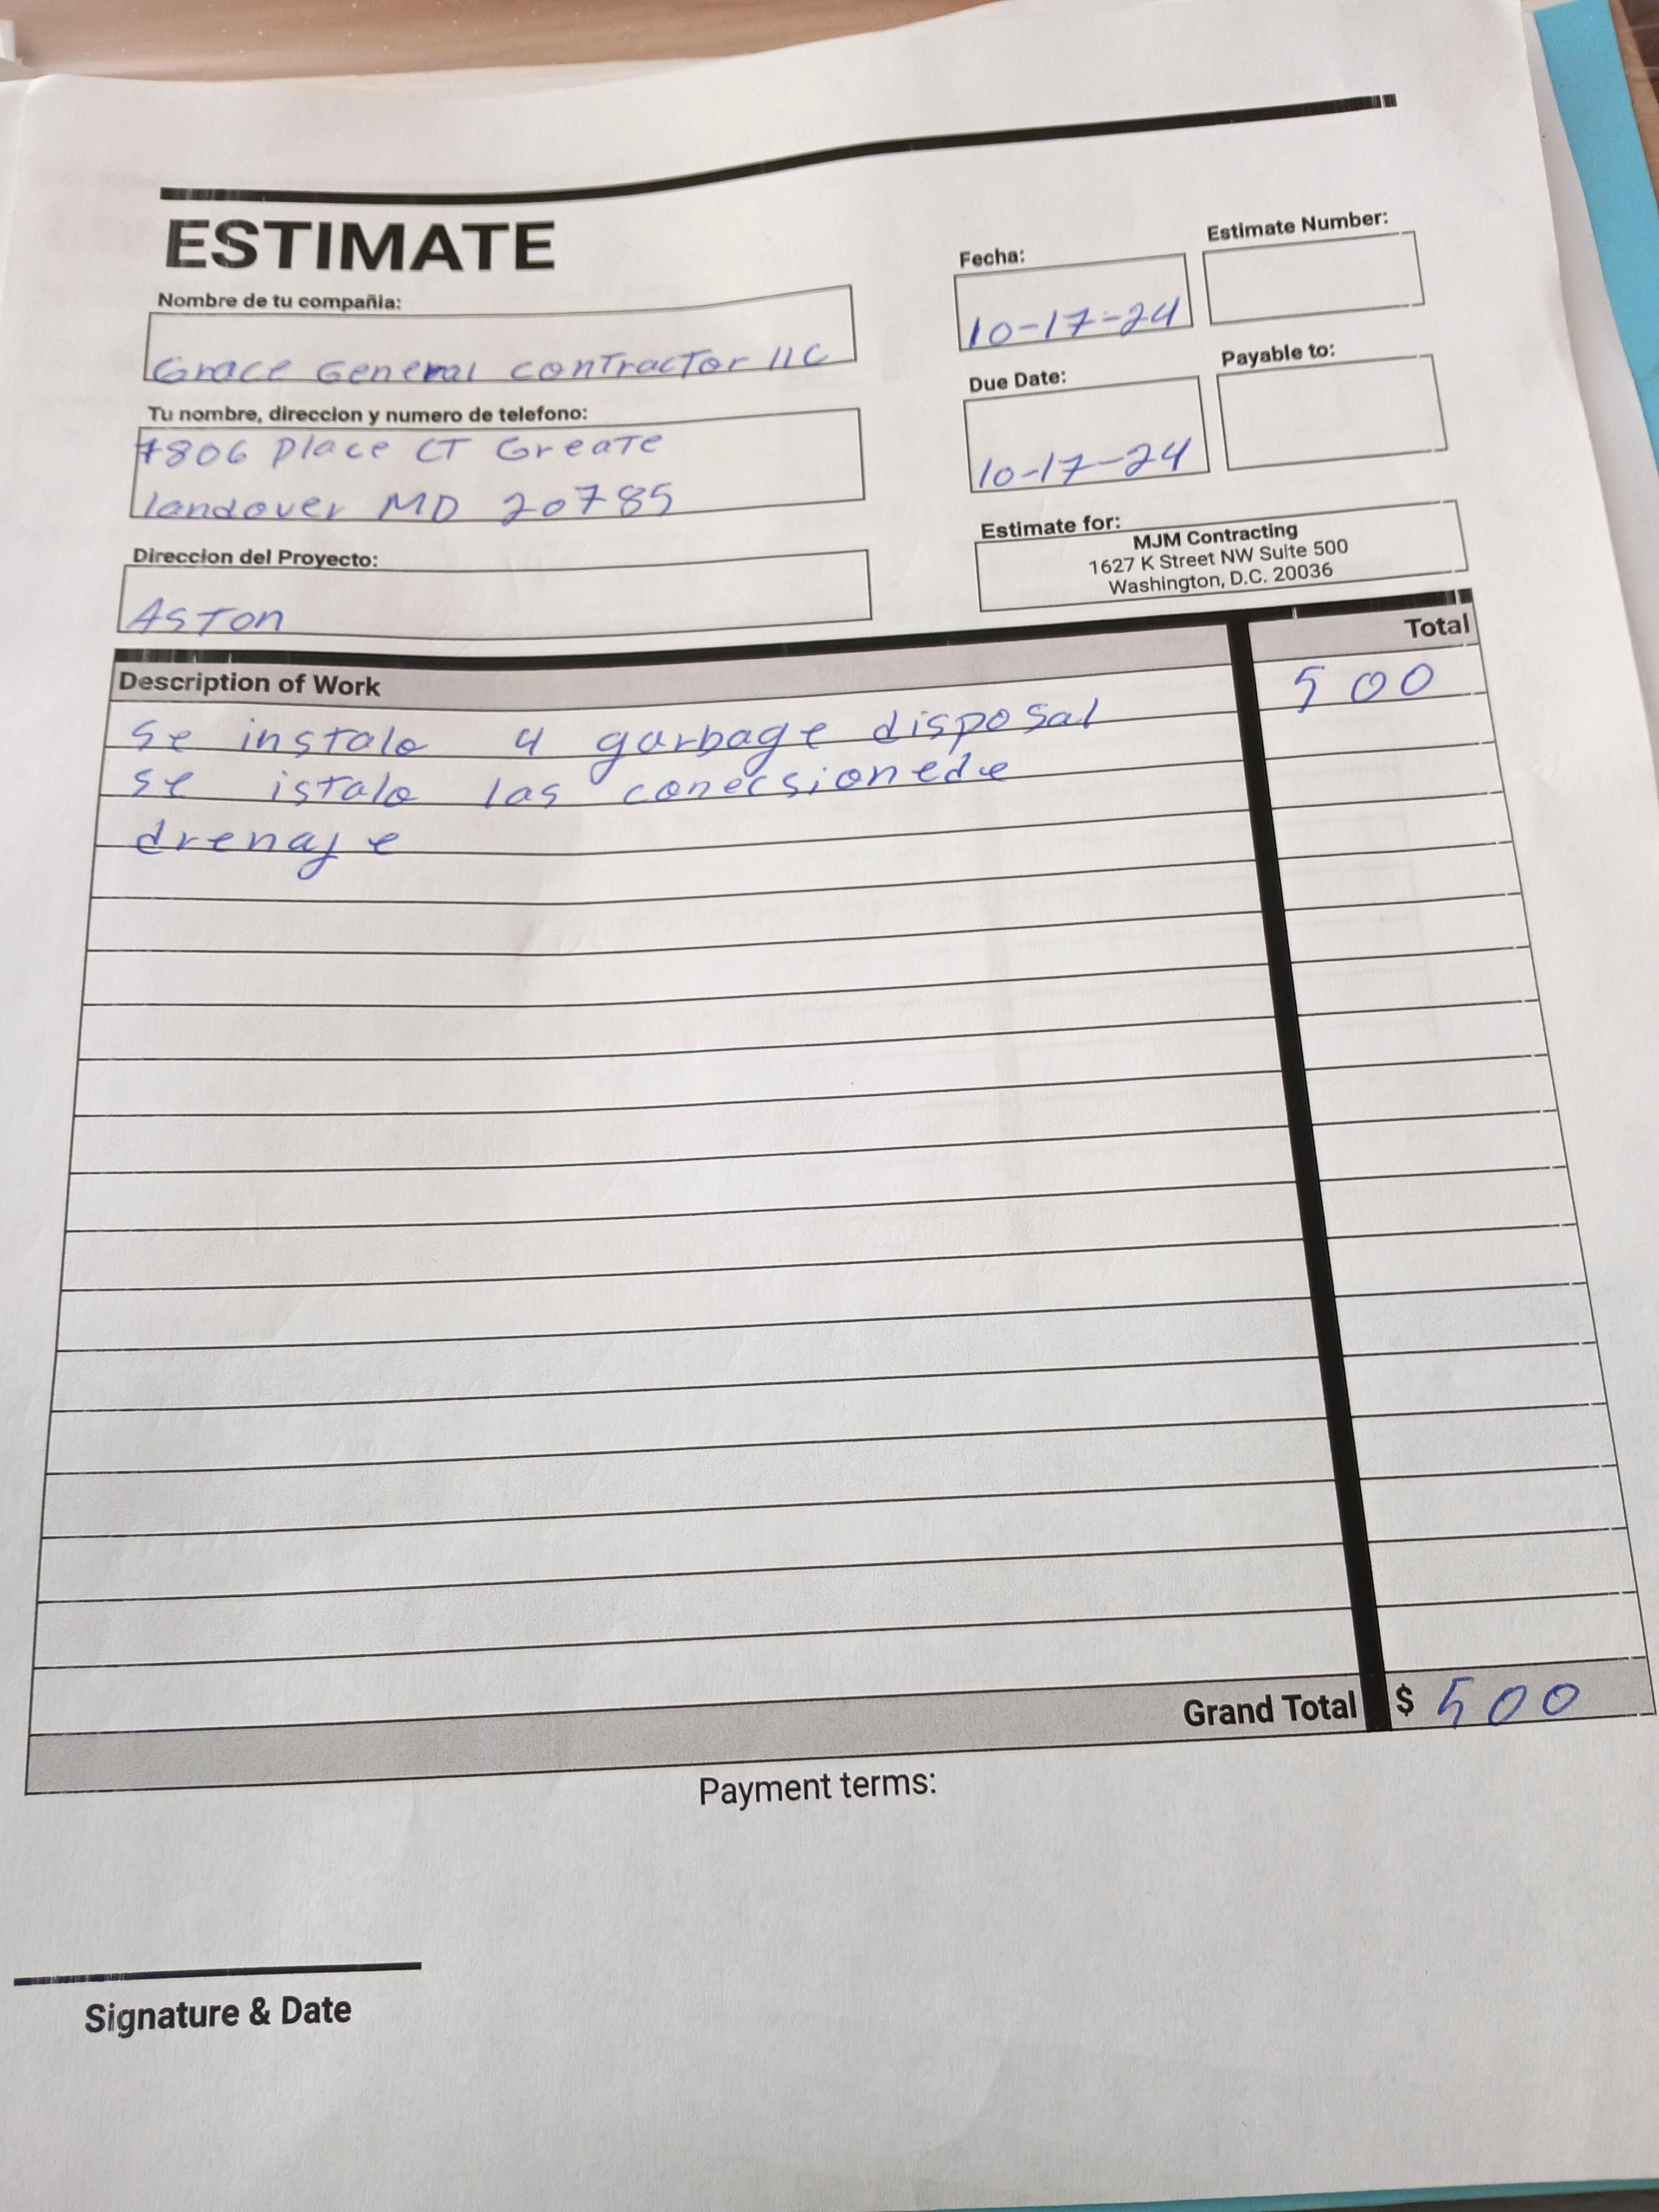 ESTIMATE
Nombre de tu compañia:
Grace General contractor llc
Tu nombre, direccion y numero de telefono:
7806 Place CT Greate
landover MD 20785
Direccion del Proyecto:
Aston
Fecha:
10-17-24
Estimate Number:
Due Date:
10-17-24
Payable to:
Estimate for:
MJM Contracting
1627 K Street NW Suite 500
Washington, D.C. 20036
Description of Work
Total
se instalo 4 garbage disposal
500
se istalo las conecsionede
drenaje
Grand Total $ 500
Payment terms:
Signature & Date